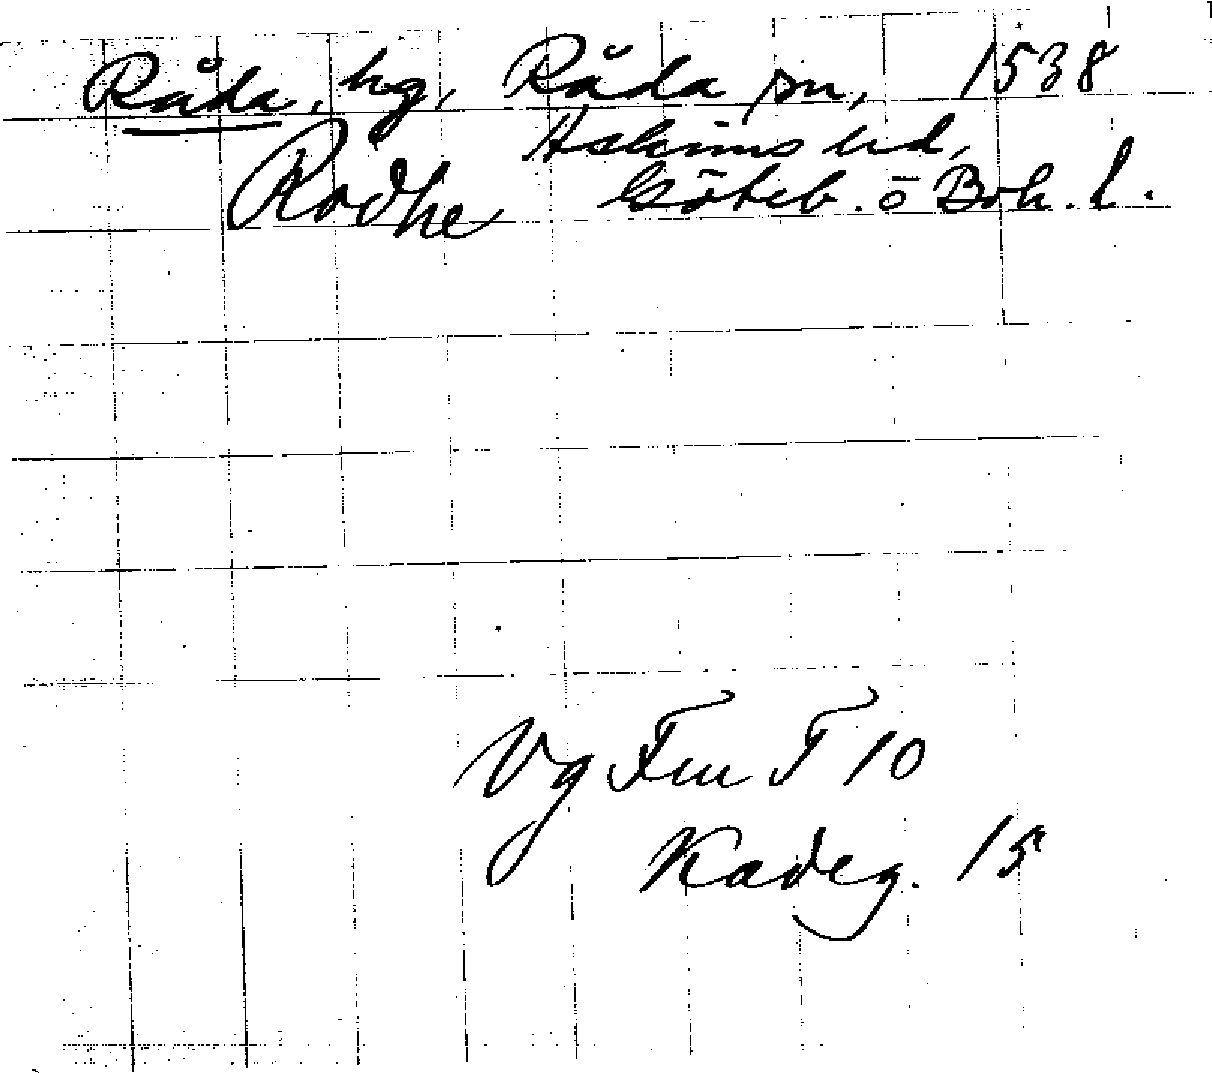 Råda, hg, Råda sn, 1538
Askims hd,
Rodhe Göteb. o Boh. l.
Vg Fru F 10
Kadeg. 15